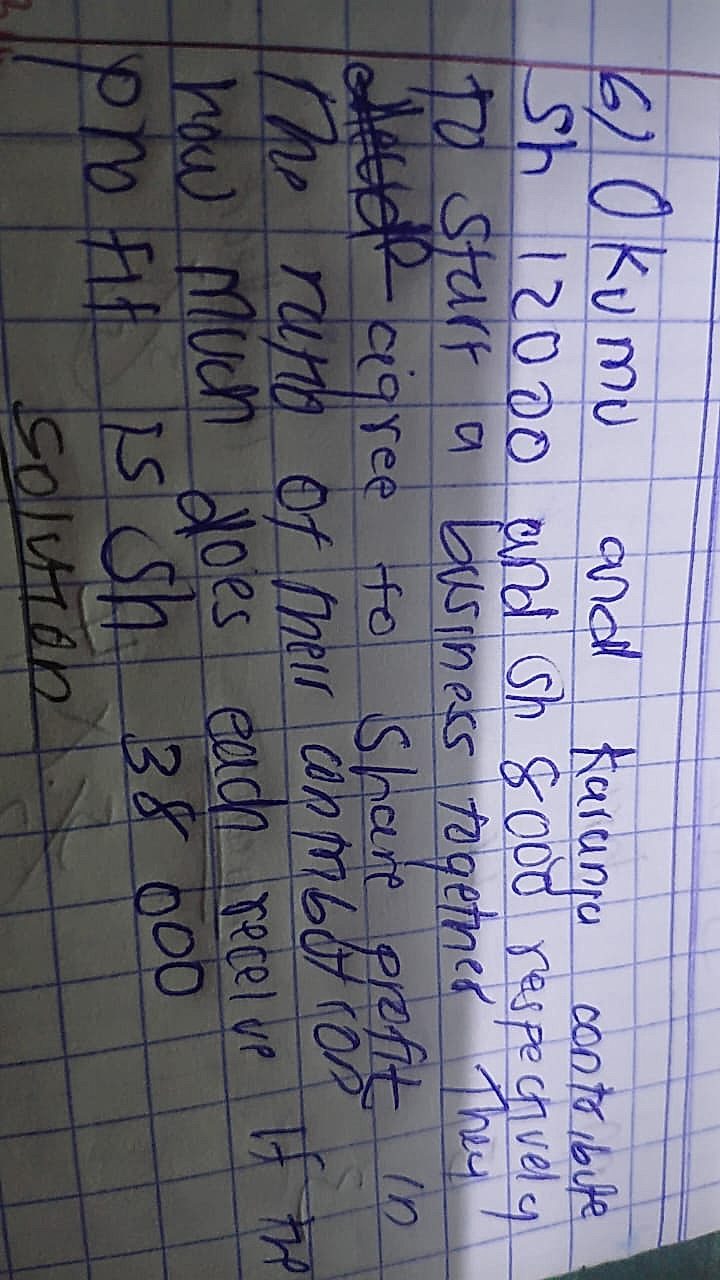 6) Okumu and Karanja contribute
Sh 12000 and Sh 8000 respectively
To start a business together They
agree to share profit in
The ratio of their contribution
how much does each receive If the
profit is Sh 38 000
Solution